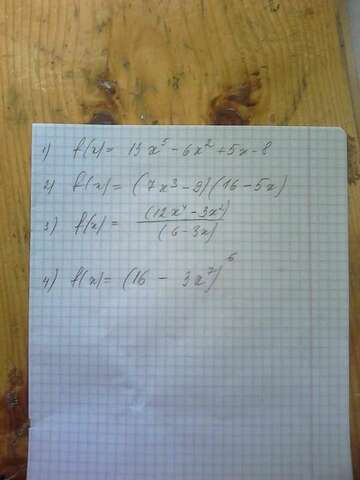 1) f(x) = 13x⁵ - 6x² + 5x - 8
2) f(x) = (7x³ - 9)(16 - 5x)
3) f(x) = (12x⁴ - 3x²) / (6 - 3x)
4) f(x) = (16 - 3x⁷)⁶